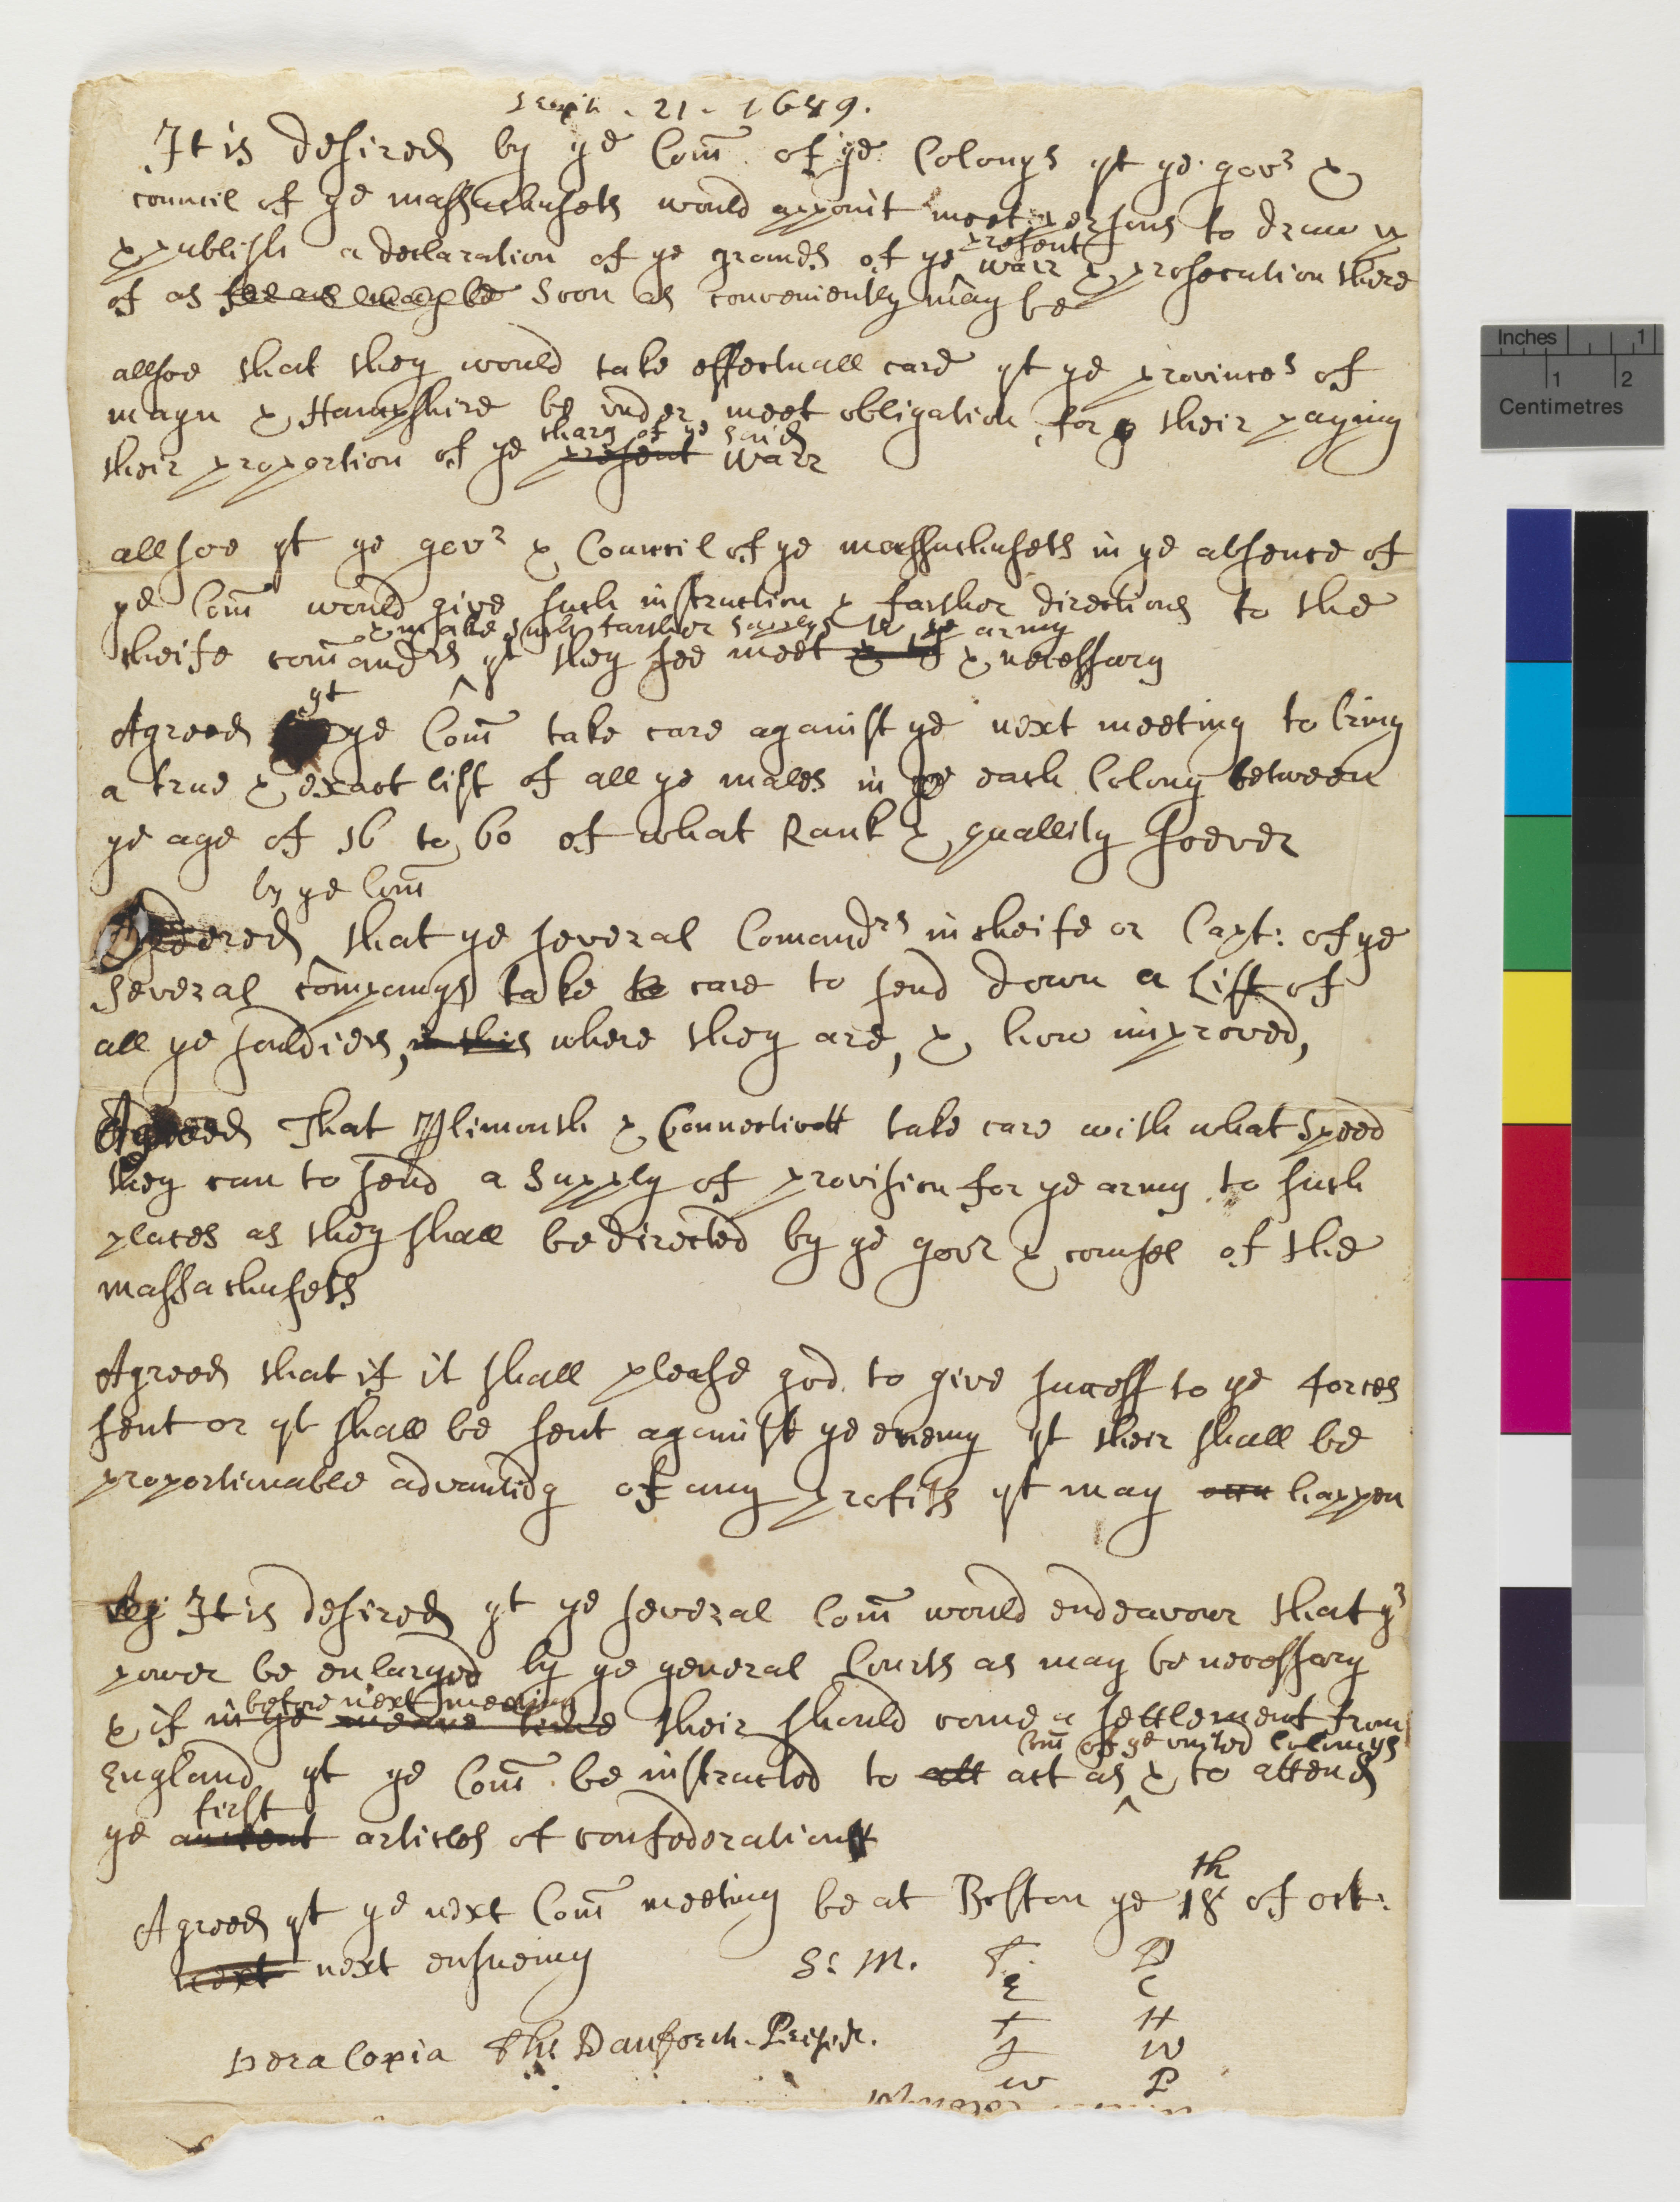 Septr. 21. 1689.
It is desired by ye Com̄ of ye Colonys yt ye govr &
council of ye massachusets would appoint meet persons to draw up
& publish a declaration of ye grounds of ye present warr & prosecution there
of as soon as conveniently may be
allsoe that they would take effectuall care yt ye provinces of
mayn & Hampshire be under meet obligation for their paying
their proportion of ye charg of ye said warr
allsoe yt ye govr & Councel of ye massachusets in ye absence of
ye Com̄ would give such instruction & farther directions to the
& make such farther supplys to ye army
cheife com̄andrs yt they see meet & necessary
Agreed yt ye Com̄ take care against ye next meeting to bring
a true & exact list of all ye males in each Colony between
ye age of 16 to 60 of what Rank & quallity soever
by ye Com̄
Ordered that ye several Comandrs in cheife or Capt: of ye
several companys take care to send down a List of
all ye souldiers, where they are, & how improved,
Agreed That Plimouth & Connecticott take care with what speed
they can to send a supply of provision for ye army to such
places as they shall be directed by ye govr & counsel of the
massachusets
Agreed that if it shall please god to give success to ye forces
sent or yt shall be sent against ye enemy yt their shall be
proportionable advantidg of any profits yt may happen
It is desired yt ye several Com̄ would endeavour that yr
power be enlarged by ye general Courts as may be necessary
& if before next meeting their should come a settlement from
England yt ye Com̄ be instructed to act as Com̄ of ye united Colonys & to attend
ye first articles of confederation
Agreed yt ye next Com̄ meeting be at Boston ye 18th of oct:
next ensueing
S: M. T. D
E C
T H
J W
W P
vera Copia Tho Danforth. Presidt.